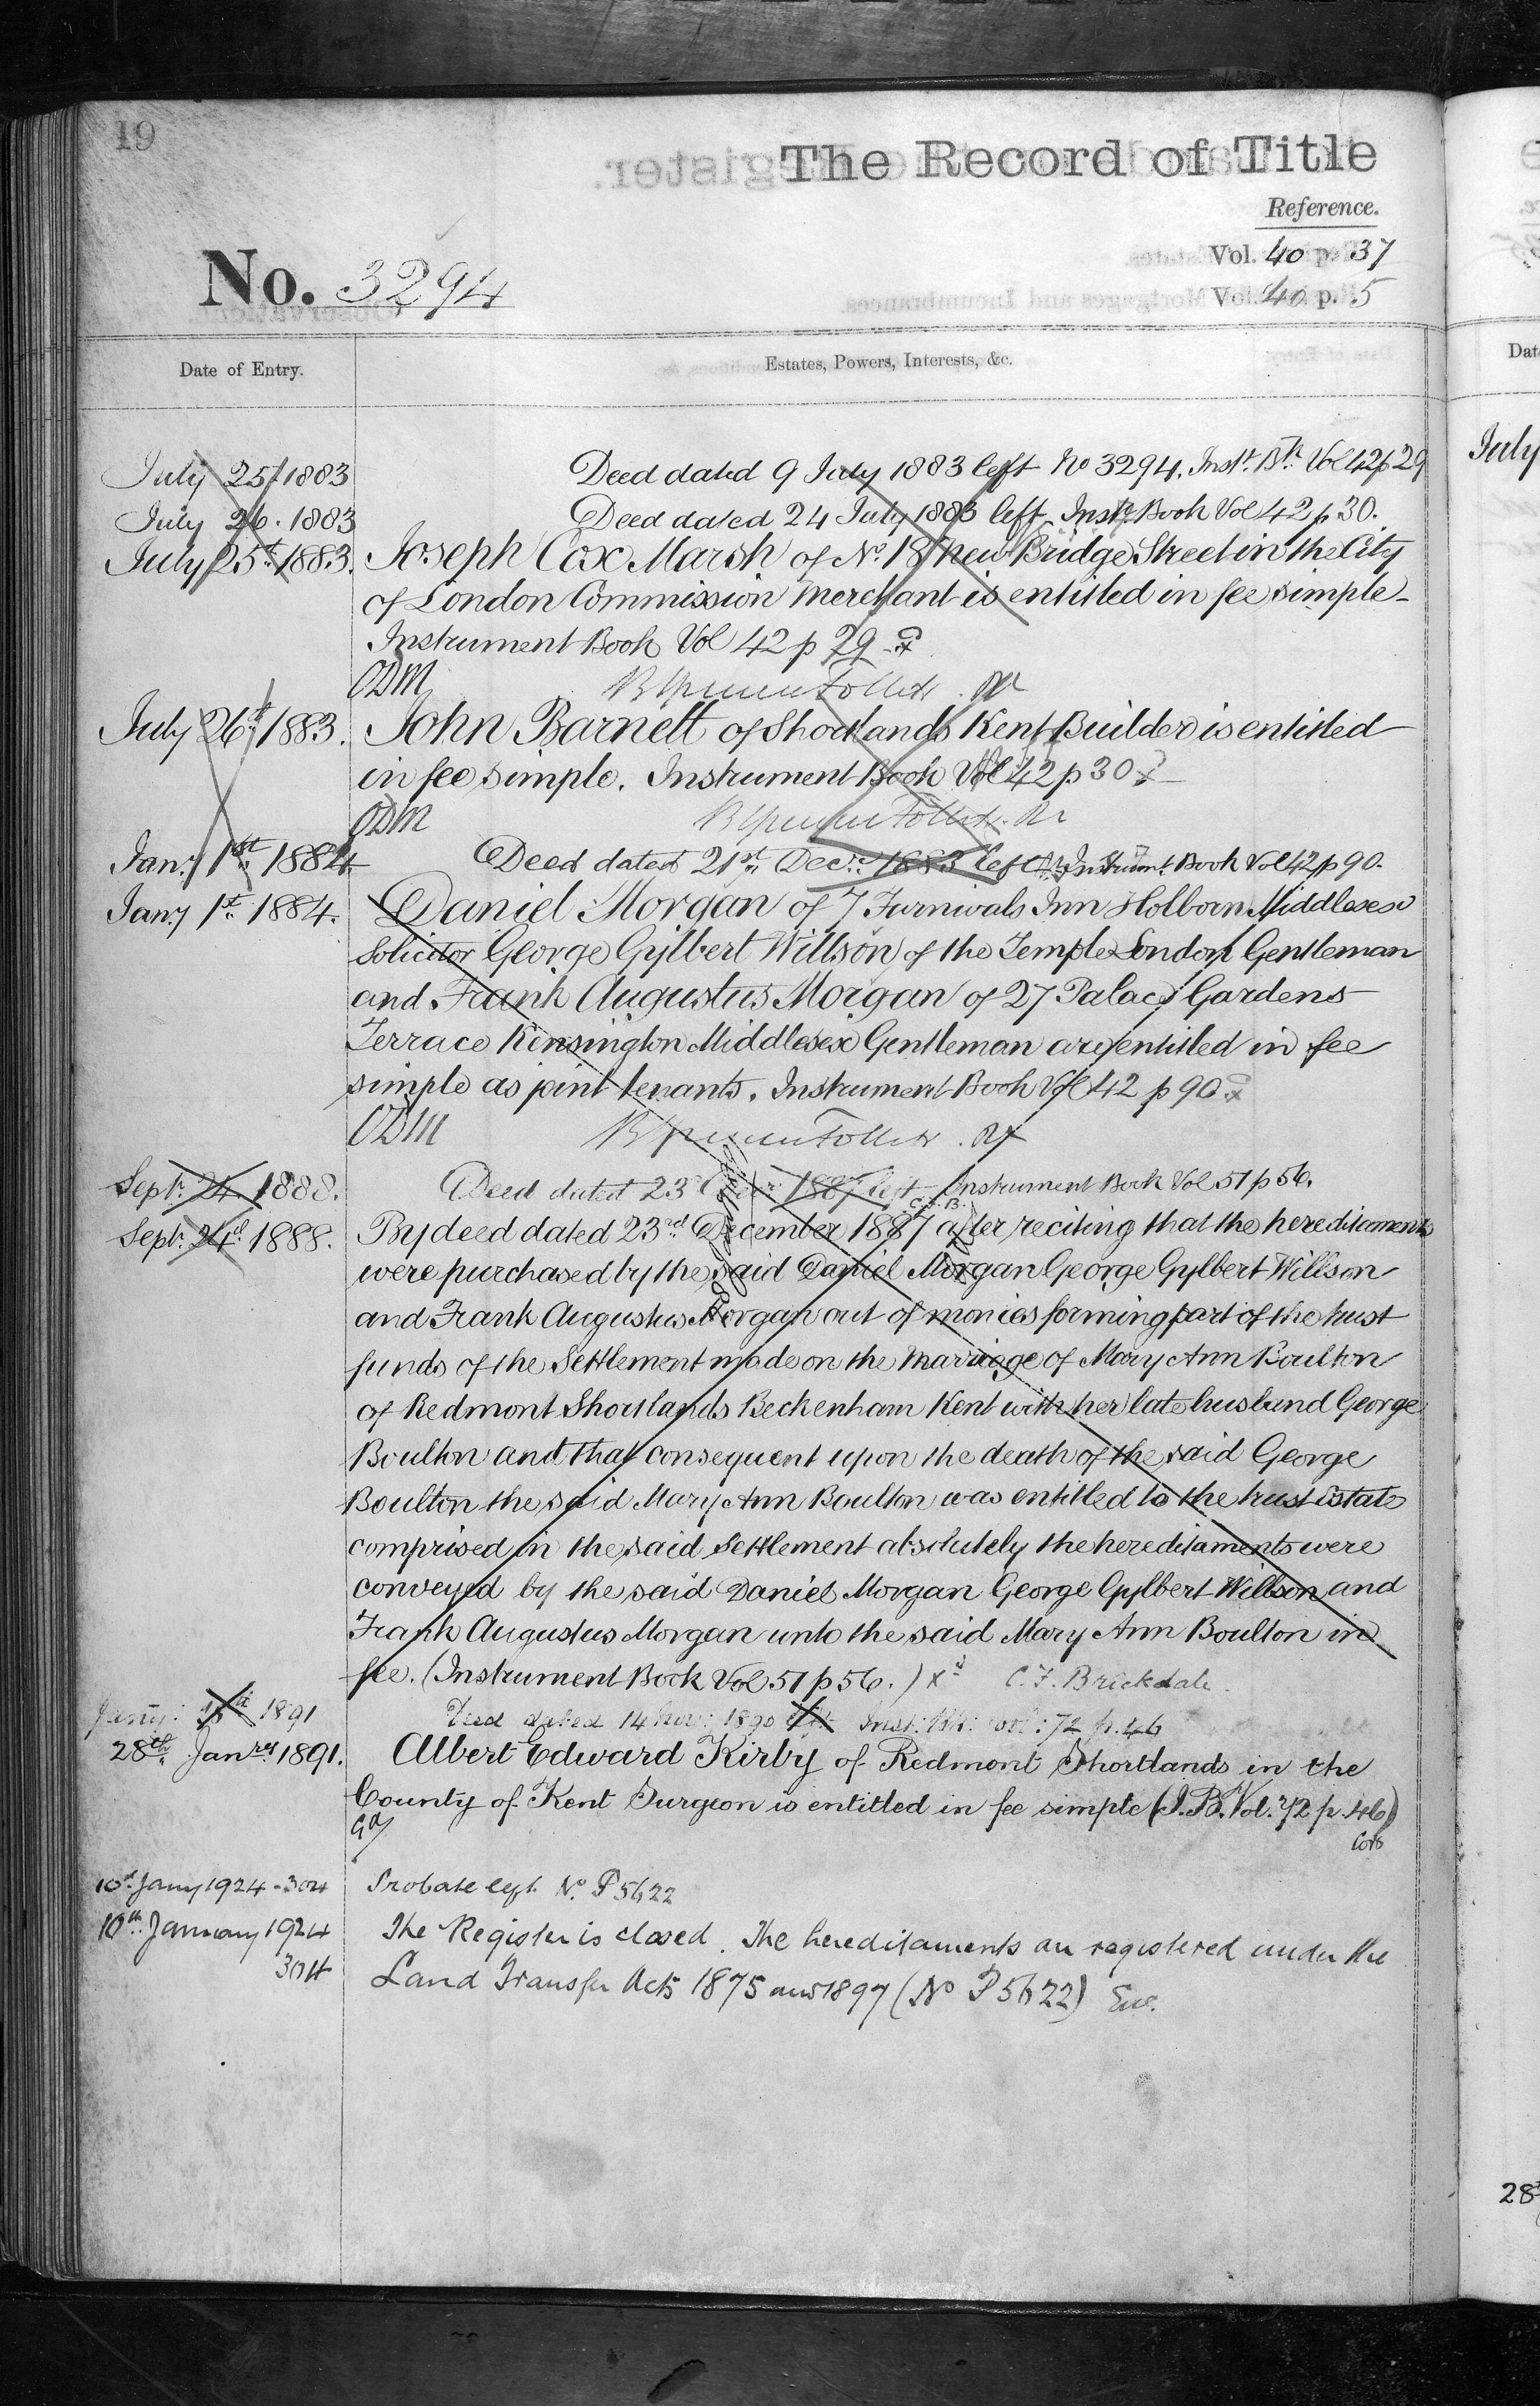 19
The Record of Title
Reference.
Vol. 40 p. 37
Vol. 40 p. 5
No. 3294
Date of Entry.
Estates, Powers, Interests, &c.
July 25 1883 Deed dated 9 July 1883 left No 3294. Inst. Bk. Vol 42 p 29
July 26. 1883 Deed dated 24 July 1883 left Inst. Book Vol 42 p 30.
July 25th 1883. Joseph Cox Marsh of No. 18 New Bridge Street in the City
of London Commission Merchant is entitled in fee simple
Instrument Book Vol 42 p 29
ODM
July 26th 1883. John Barnett of Shortlands Kent Builder is entitled
in fee simple. Instrument Book Vol 42 p 30
ODM
Jany 1st 1884 Deed dated 21st Decr. 1883 left Instrumt. Book Vol 42 p 90.
Jany 1st 1884. Daniel Morgan of 7 Furnivals Inn Holborn Middlesex
Solicitor George Gylbert Willson of the Temple London Gentleman
and Frank Augustus Morgan of 27 Palace Gardens
Terrace Kensington Middlesex Gentleman are entitled in fee
simple as joint tenants. Instrument Book Vol 42 p 90
ODM
Sept. 24. 1888. Deed dated 23 Decr. 1887 left Instrument Book Vol 51 p 56.
Sept. 24 1888. By deed dated 23rd December 1887 after reciting that the hereditaments
were purchased by the said Daniel Morgan George Gylbert Willson
and Frank Augustus Morgan out of monies forming part of the trust
funds of the Settlement made on the marriage of Mary Ann Boulton
of Redmont Shortlands Beckenham Kent with her late husband George
Boulton and that consequent upon the death of the said George
Boulton the said Mary Ann Boulton was entitled to the trust Estate
comprised in the said Settlement absolutely the hereditaments were
conveyed by the said Daniel Morgan George Gylbert Willson and
Frank Augustus Morgan unto the said Mary Ann Boulton in
fee. (Instrument Book Vol 51 p 56.) C. F. Brickdale.
1891 Deed dated 14 Nov: 1890 left Inst: Bk: vol: 72 p. 46
28th Janry 1891. Albert Edward Kirby of Redmont Shortlands in the
County of Kent Surgeon is entitled in fee simple (I. B. Vol. 72 p. 46)
10th Jany 1924 Probate left No. P 5622
10th January 1924 The Register is closed. The hereditaments are registered under the
Land Transfer Acts 1875 and 1897 (No P 5622)
Dat
July
28